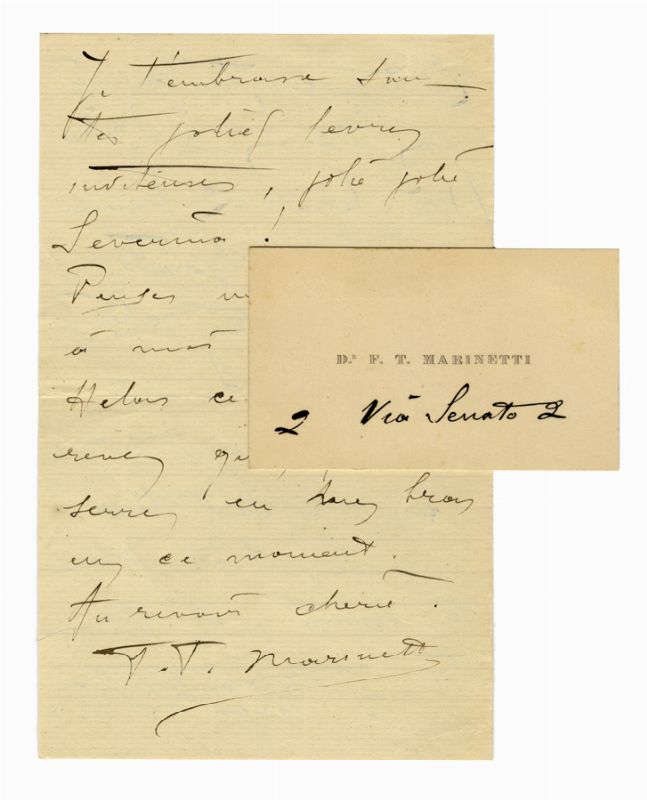 Je t'embrasse sur
tes jolies levres
inviteuses, jolie jolie
Severina!
Penses
à moi
Helas ce
reves
serres en tes bras
en ce moment.
Au revoir cherie.
F. T. Marinetti
D.r F. T. MARINETTI
2 Via Senato 2